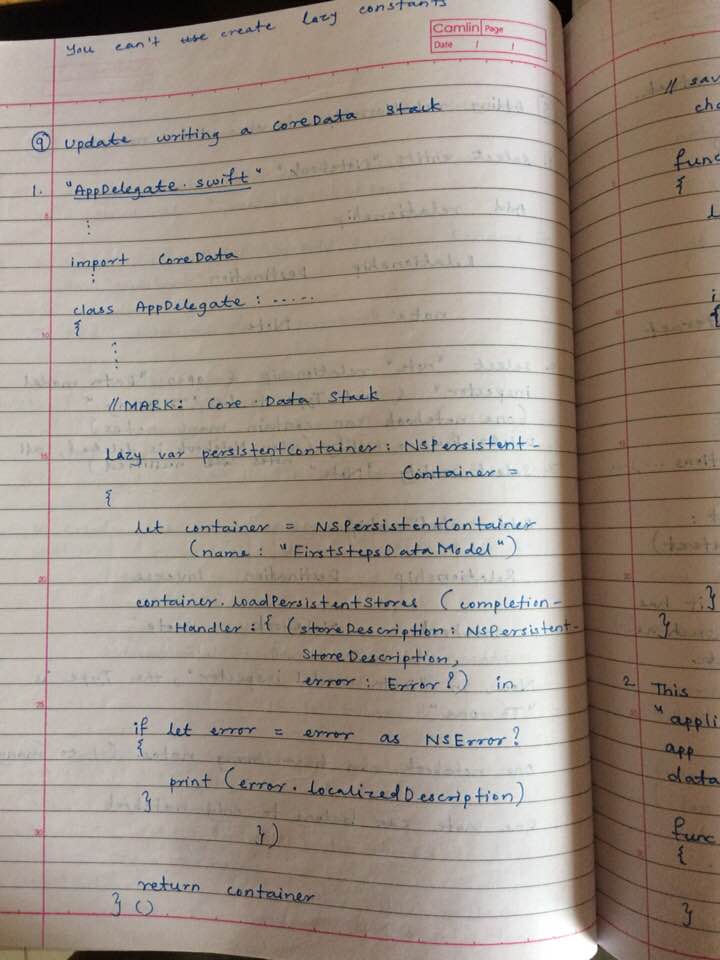 You can't use create lazy constants
Camlin Page
Date / /
9 Update writing a CoreData stack
1. "AppDelegate.swift"
import CoreData
class AppDelegate : .....
{
// MARK: Core Data Stack
lazy var persistentContainer : NSPersistent-
Container =
{
let container = NSPersistentContainer
(name : "FirstStepsDataModel")
container.loadPersistentStores (completion-
Handler : { (storeDescription : NSPersistent-
StoreDescription,
error : Error?) in
if let error = error as NSError?
{
print (error.localizedDescription)
}
})
return container
} ()
// sav
cha
func
{
}
}
2 This
"appli
app
data
func
{
}